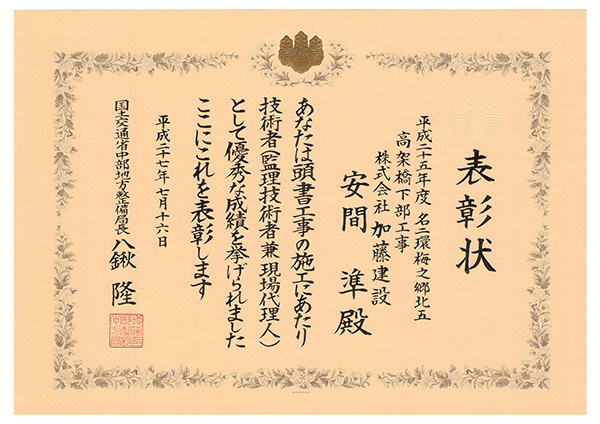 表彰状
平成二十五年度 名二環梅之郷北五
高架橋下部工事
株式会社 加藤建設
安間 準殿
あなたは頭書工事の施工にあたり
技術者(監理技術者兼現場代理人)
として優秀な成績を挙げられました
ここにこれを表彰します
平成二十七年七月十六日
国土交通省中部地方整備局長 八鍬 隆